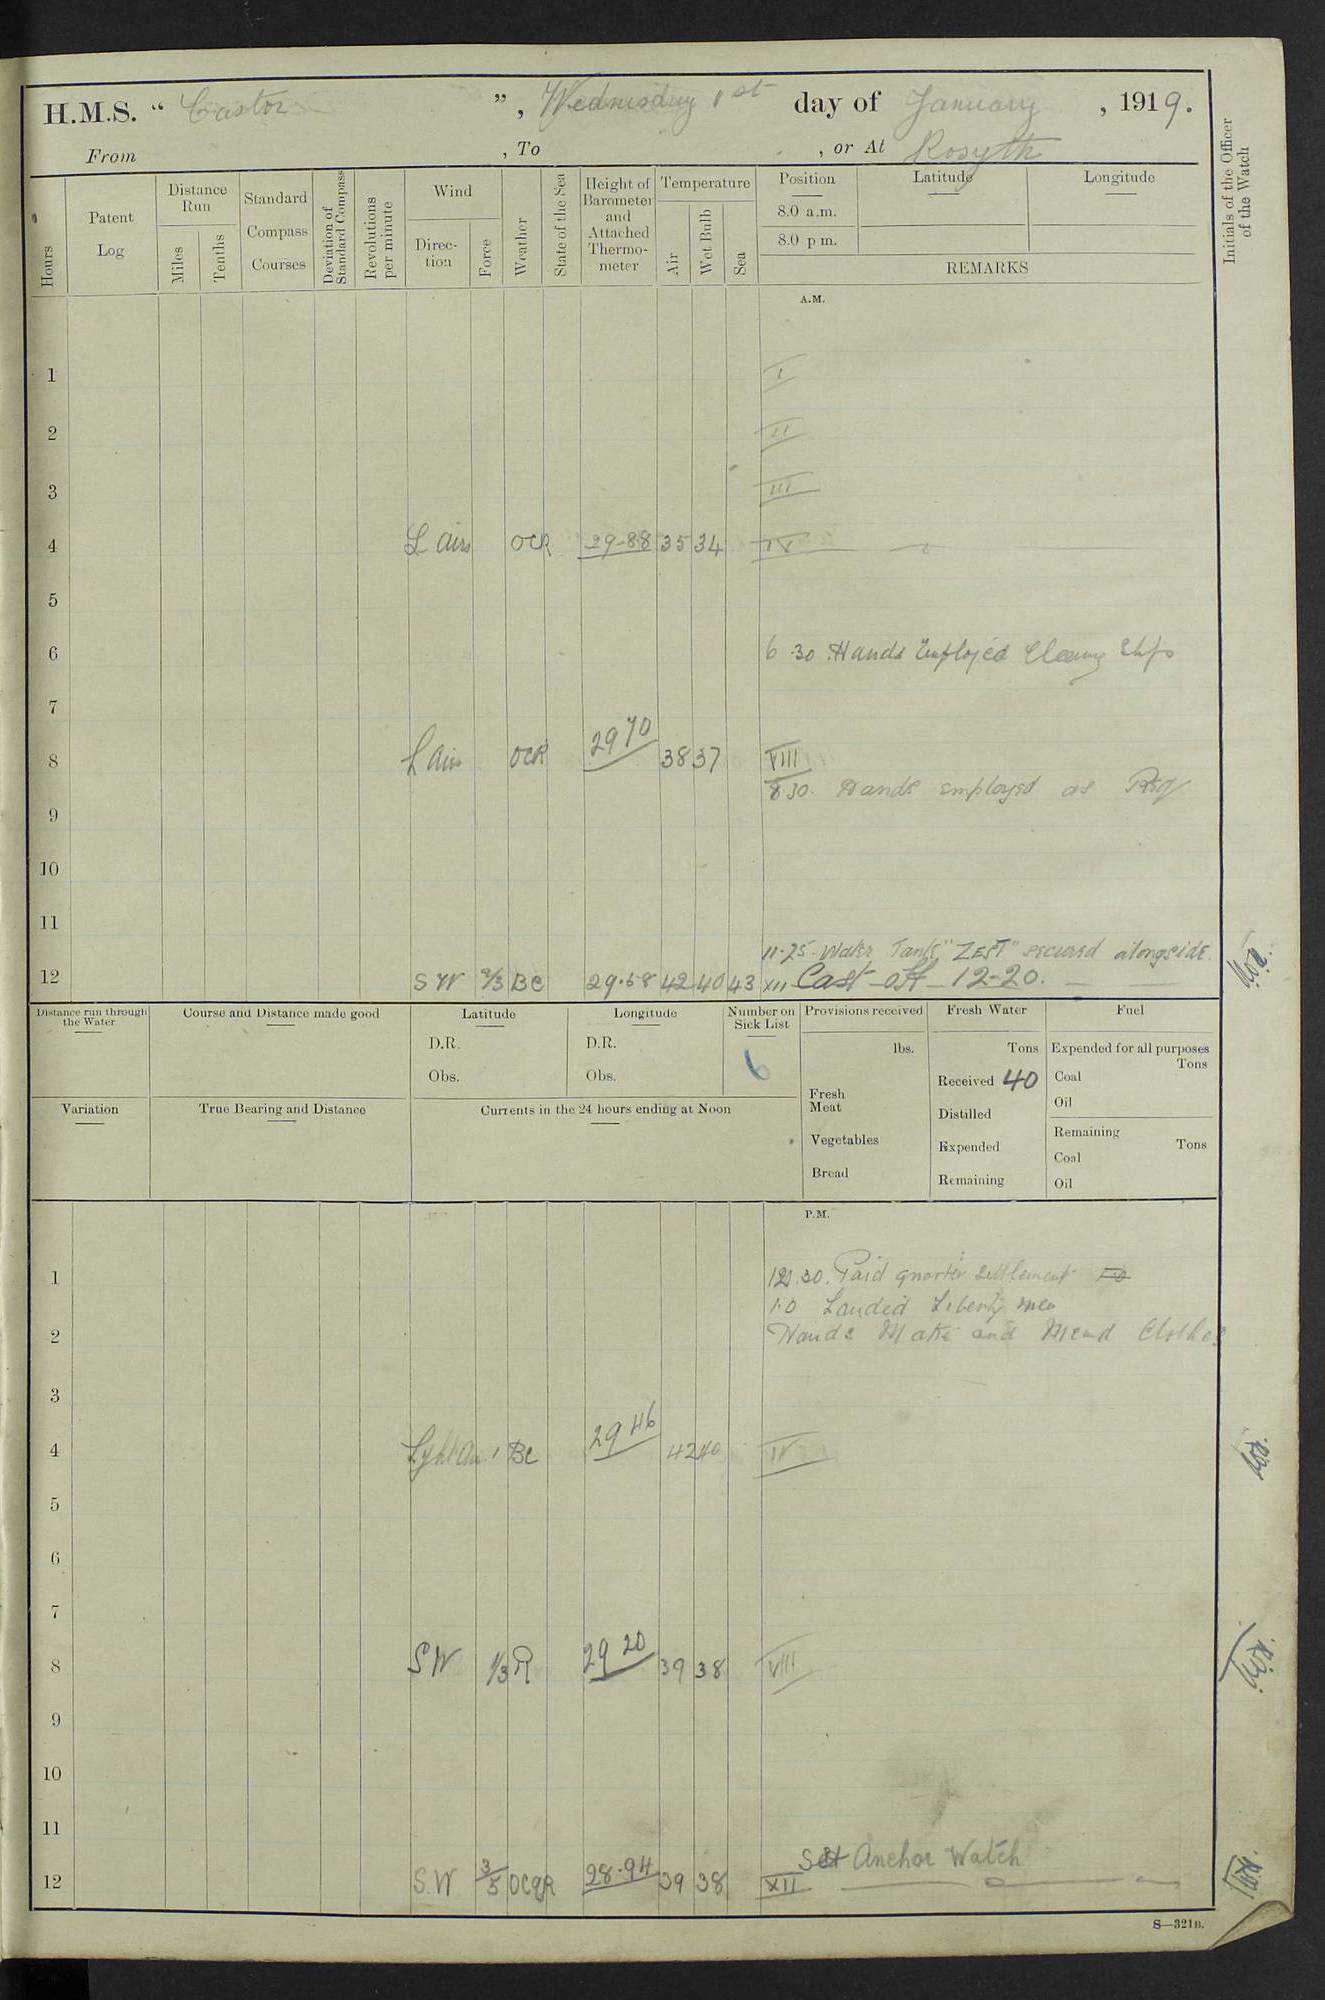 H.M.S. “ Castor ”, Wednesday 1st day of January , 1919.
From , To , or At Rosyth
Hours
Patent Log
Distance Run
Miles
Tenths
Standard Compass Courses
Deviation of Standard Compass
Revolutions per minute
Wind
Direction
Force
Weather
State of the Sea
Height of Barometer and Attached Thermometer
Temperature
Air
Wet Bulb
Sea
Position Latitude Longitude
8.0 a.m.
8.0 p m.
REMARKS
Initials of the Officer of the Watch
A.M.
1 I
2 II
3 III
4 L airs OCR 29-88 35 34 IV
5
6 6.30 Hands Employed Cleaning Ship
7
8 L airs OCR 29 70 38 37 VIII
8.30. Hands employed as Req
9
10
11
11-25. Water Tank "ZEST" secured alongside.
12 S W 2/3 BC 29.58 42 40 43 XII Cast off 12-20.
Distance run through the Water
Course and Distance made good
Latitude
D.R.
Obs.
Longitude
D.R.
Obs.
Number on Sick List
6
Provisions received
lbs.
Fresh Meat
Vegetables
Bread
Fresh Water
Tons
Received 40
Distilled
Expended
Remaining
Fuel
Expended for all purposes
Tons
Coal
Oil
Remaining
Tons
Coal
Oil
Variation
True Bearing and Distance
Currents in the 24 hours ending at Noon
P.M.
1 12.30. Paid quarter settlement
1.0 Landed Liberty men
2 Hands Make and Mend Clothes
3
4 Light Air 1 BC 29 46 42 40 IV
5
6
7
8 SW 1/3 R 29 20 39 38 VIII
9
10
11
Set Anchor Watch
12 S.W 3/5 OCQR 28.94 39 38 XII
S—321B.